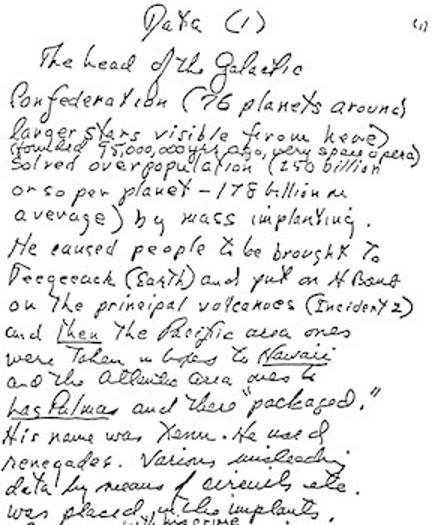 Data (1) (1)
The head of the Galactic
Confederation (76 planets around
larger stars visible from here)
(founded 95,000,000 yrs ago, very space opera)
solved overpopulation (250 billion
or so per planet - 178 billion on
average) by mass implanting.
He caused people to be brought to
Teegeeack (Earth) and put an H Bomb
on the principal volcanoes (Incident 2)
and then the Pacific area ones
were taken in boxes to Hawaii
and the Atlantic area ones to
Las Palmas and there "packaged."
His name was Xenu. He used
renegades. Various misleading
data by means of circuits etc.
was placed in the implants.